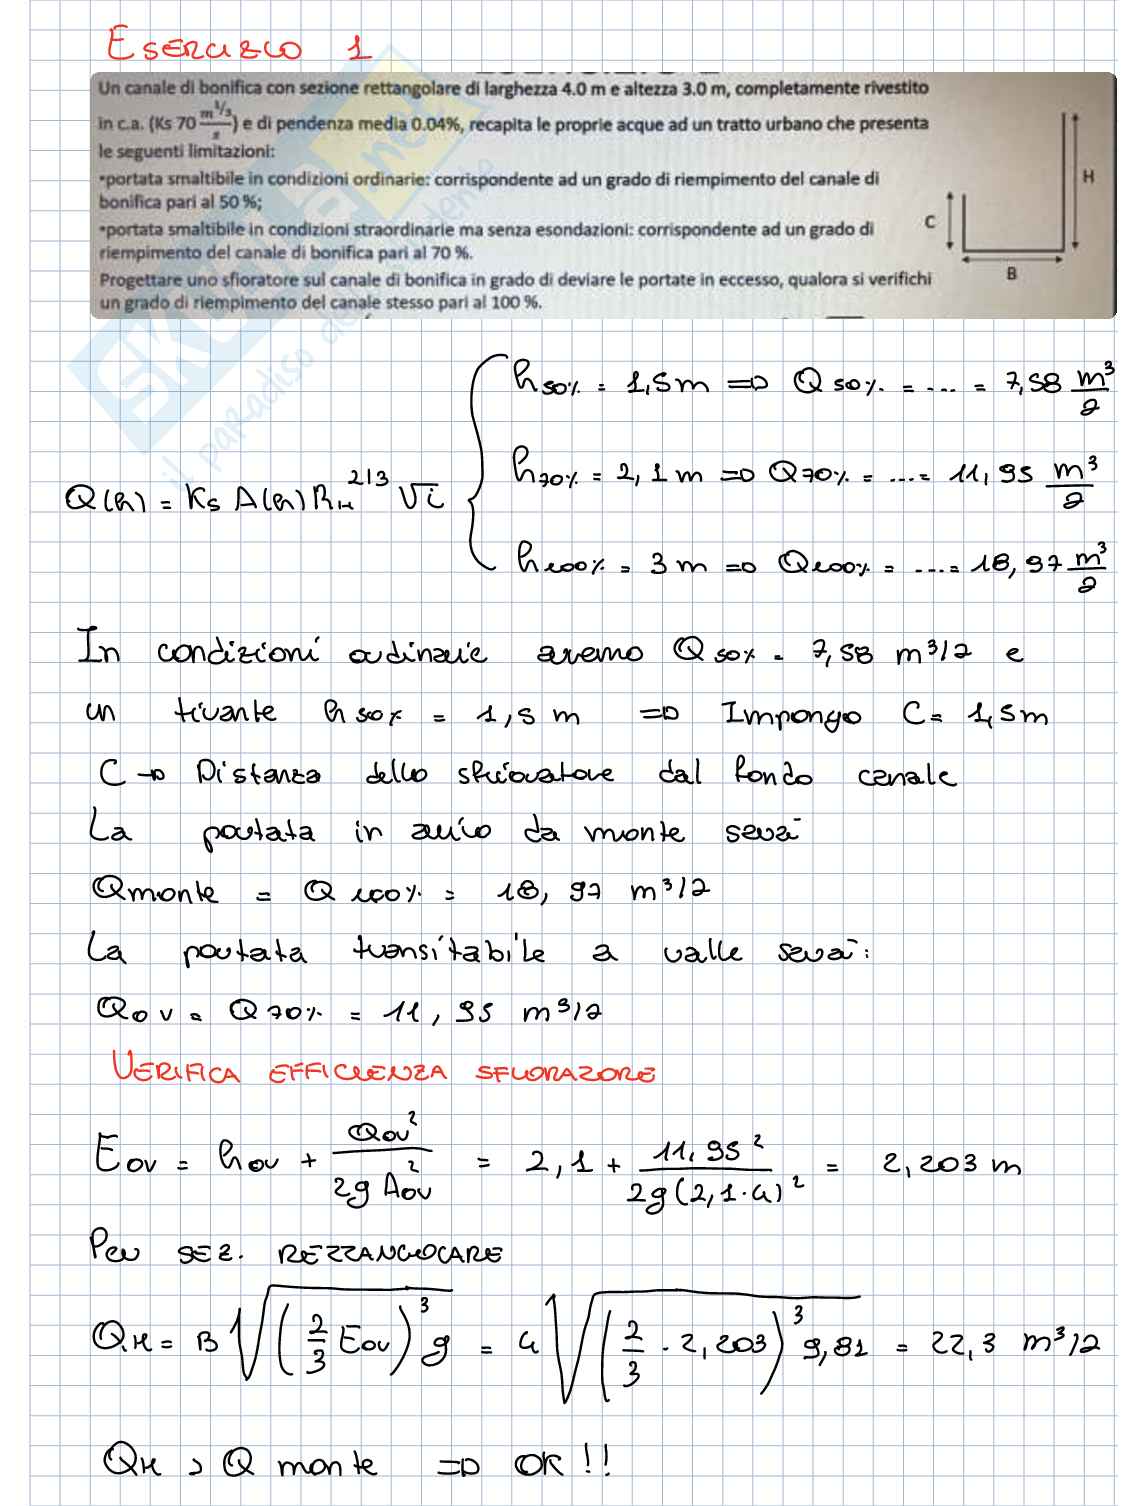 ESERCIZIO 1
Un canale di bonifica con sezione rettangolare di larghezza 4.0 m e altezza 3.0 m, completamente rivestito
in c.a. (Ks 70 m^1/3/s) e di pendenza media 0.04%, recapita le proprie acque ad un tratto urbano che presenta
le seguenti limitazioni:
•portata smaltibile in condizioni ordinarie: corrispondente ad un grado di riempimento del canale di
bonifica pari al 50 %;
•portata smaltibile in condizioni straordinarie ma senza esondazioni: corrispondente ad un grado di
riempimento del canale di bonifica pari al 70 %.
Progettare uno sfioratore sul canale di bonifica in grado di deviare le portate in eccesso, qualora si verifichi
un grado di riempimento del canale stesso pari al 100 %.
C
H
B
il paradiso dello studente
h50% = 1,5 m => Q50% = ... = 7,58 m³/s
h70% = 2,1 m => Q70% = ... = 11,95 m³/s
Q(h) = Ks A(h) RH^2/3 √i
h100% = 3 m => Q100% = .... = 18,97 m³/s
In condizioni ordinarie avremo Q50% = 7,58 m³/s e
un tirante h50% = 1,5 m => Impongo C = 1,5m
C → Distanza dello sfioratore dal fondo canale
La portata in arrivo da monte sarà
Qmonte = Q100% = 18,97 m³/s
La portata transitabile a valle sarà:
Qov = Q70% = 11,95 m³/s
VERIFICA EFFICIENZA SFIORATORE
Eov = hov + Qov²/2g Aov² = 2,1 + 11,95²/2g(2,1·4)² = 2,203 m
Per SEZ. RETTANGOLARE
QK = B √(2/3 Eov)³ g = 4 √(2/3 · 2,203)³ 9,81 = 22,3 m³/s
QK > Q monte => OK!!